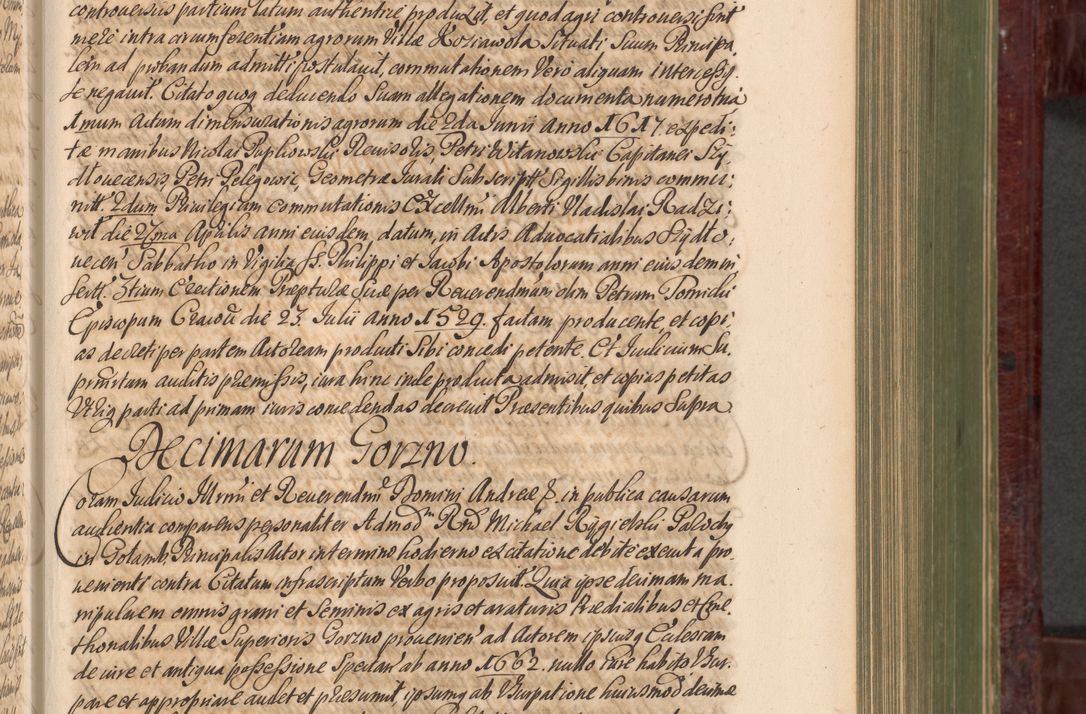 controversus particum latum authentrie produxit, et quod agri controversi sint
mere intra circumferentiam agrorum Villæ Kozcawola Situati Suum Principa,
lem ad probandum admitti postulavit, commutationem Vero aliquam intercessis,
se negavit. Citatoquoq deducendo Suam allegationem documenta numero tria
1mum Actum dimensurationis agrorum die 2da Junii Anno 1617. expedi:
tæ manibus Nicolai Pupkowski Revisoris, Petri Witanowski Capitanei Szy,
dlovecensis, Petri Pelegowic, Geometræ Jurati Subscriptt Sigillis binis commu:
nitt. 2dum Privilegium commutationis Excellmi Alberti Vladislai Radzi:
wil die 27ma Aprilis anni eiusdem, datum, in Actis Advocatialibus Szÿdlo,
vecen Sabbatho in Vigilia SS. Philippi et Jacobi Apostolorum anni eiusdem in
sertt. 3tium Erectionem Præptulæ Suæ per Reverendmum olim Petrum Tomicki
Episcopum Cracoū die 23. Julii anno 1529. factam producente, et copi
as decreti per partem Actoream producti Sibi concedi petente. Et Judicium Su,
prmum auditis præmissis, iura hinc inde producta admisit, et copias petitas
Utriq parti ad primam iuris concedendas decrevit Præsentibus quibus Supra
Decimarum Gorzno.
Coram Judicio Illrmi et Reverendmi Domini Andreæ &. in publica causarum
audientia comparens personaliter Admod Rnd Michael Rygielski Parochg
in Gotamb, Principalis Actor in termino hodierno ex citatione debite executa pro
venienti contra Citatum infrascriptum Verbo proposuit. Quia ipse decimam ma,
nipularem omnis grani et Seminis ex agris et araturis Prædialibus et Cme
thonalibus Villæ Superioris Gorzno provenien ad Actorem ipsiusq Ecclesiam
de iure et antiqua possessione Spectan ab anno 1662. nullo iure habito Usur,
pare et appropriare audet et præsumit ipsumq ab Usurpatione huiusmod decimæ